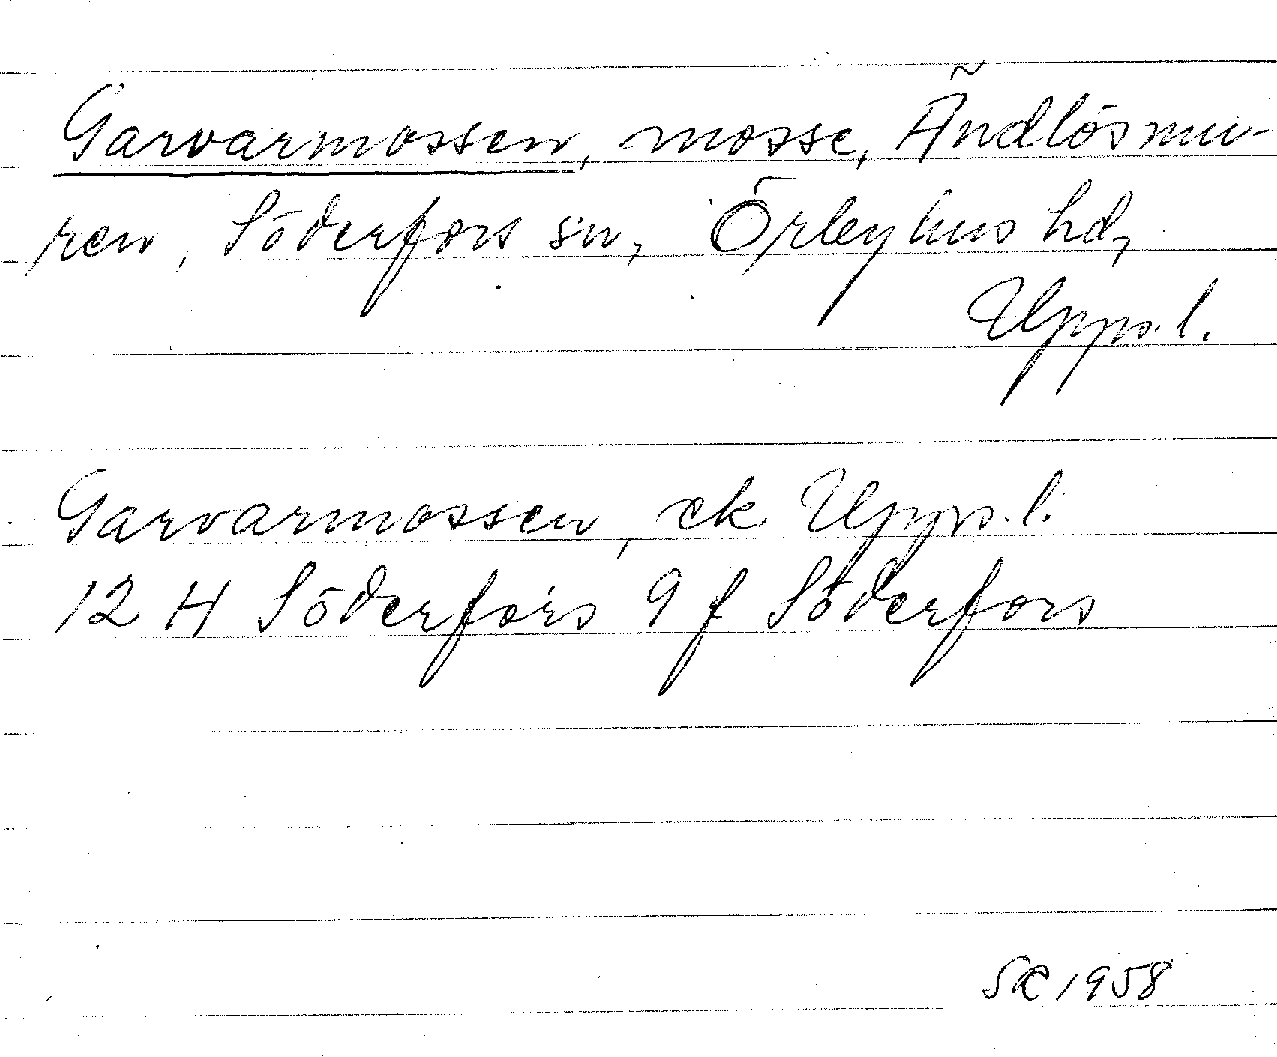 Garvarmossen, mosse, Ändlösmu-
ren, Söderfors sn, Örbyhus hd,
Uppl.
Garvarmossen, ek Uppl.
12 H Söderfors 9 f Söderfors
SR 1958